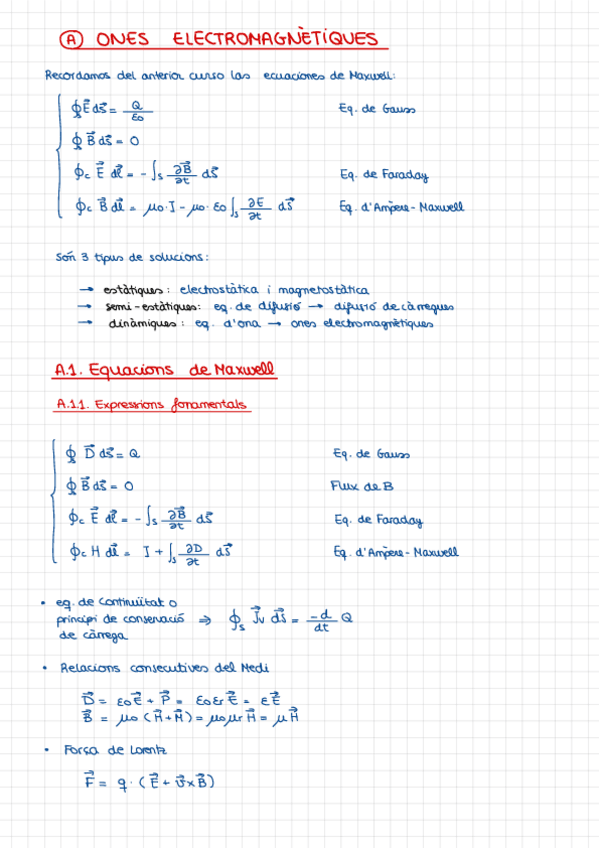 A ONES ELECTROMAGNÈTIQUES
Recordamos del anterior curso las ecuaciones de Maxwell:
∮s E⃗ ds⃗ = Q/εo Eq. de Gauss
∮s B⃗ ds⃗ = 0
∮c E⃗ dl⃗ = - ∫s ∂B⃗/∂t ds⃗ Eq. de Faraday
∮c B⃗ dl⃗ = μo·I - μo·εo ∫s ∂E/∂t ds⃗ Eq. d'Ampere-Maxwell
Son 3 tipus de solucions:
→ estàtiques: electrostàtica i magnetostàtica
→ semi-estàtiques: eq. de difusió → difusió de càrreques
→ dinàmiques: eq. d'ona → ones electromagnètiques
A.1. Equacions de Maxwell
A.1.1. Expressions fonamentals
∮s D⃗ ds⃗ = Q Eq. de Gauss
∮s B⃗ ds⃗ = 0 Flux de B
∮c E⃗ dl⃗ = - ∫s ∂B⃗/∂t ds⃗ Eq. de Faraday
∮c H dl⃗ = I + ∫s ∂D/∂t ds⃗ Eq. d'Ampere-Maxwell
• eq. de continuïtat o
principi de conservació ⇒ ∮s J⃗v ds⃗ = -d/dt Q
de càrrega
• Relacions consecutives del Medi
D⃗ = εoE⃗ + P⃗ = εoεrE⃗ = εE⃗
B⃗ = μo (H⃗+M⃗) = μoμrH⃗ = μH⃗
• Força de Lorentz
F⃗ = q·(E⃗ + v⃗xB⃗)